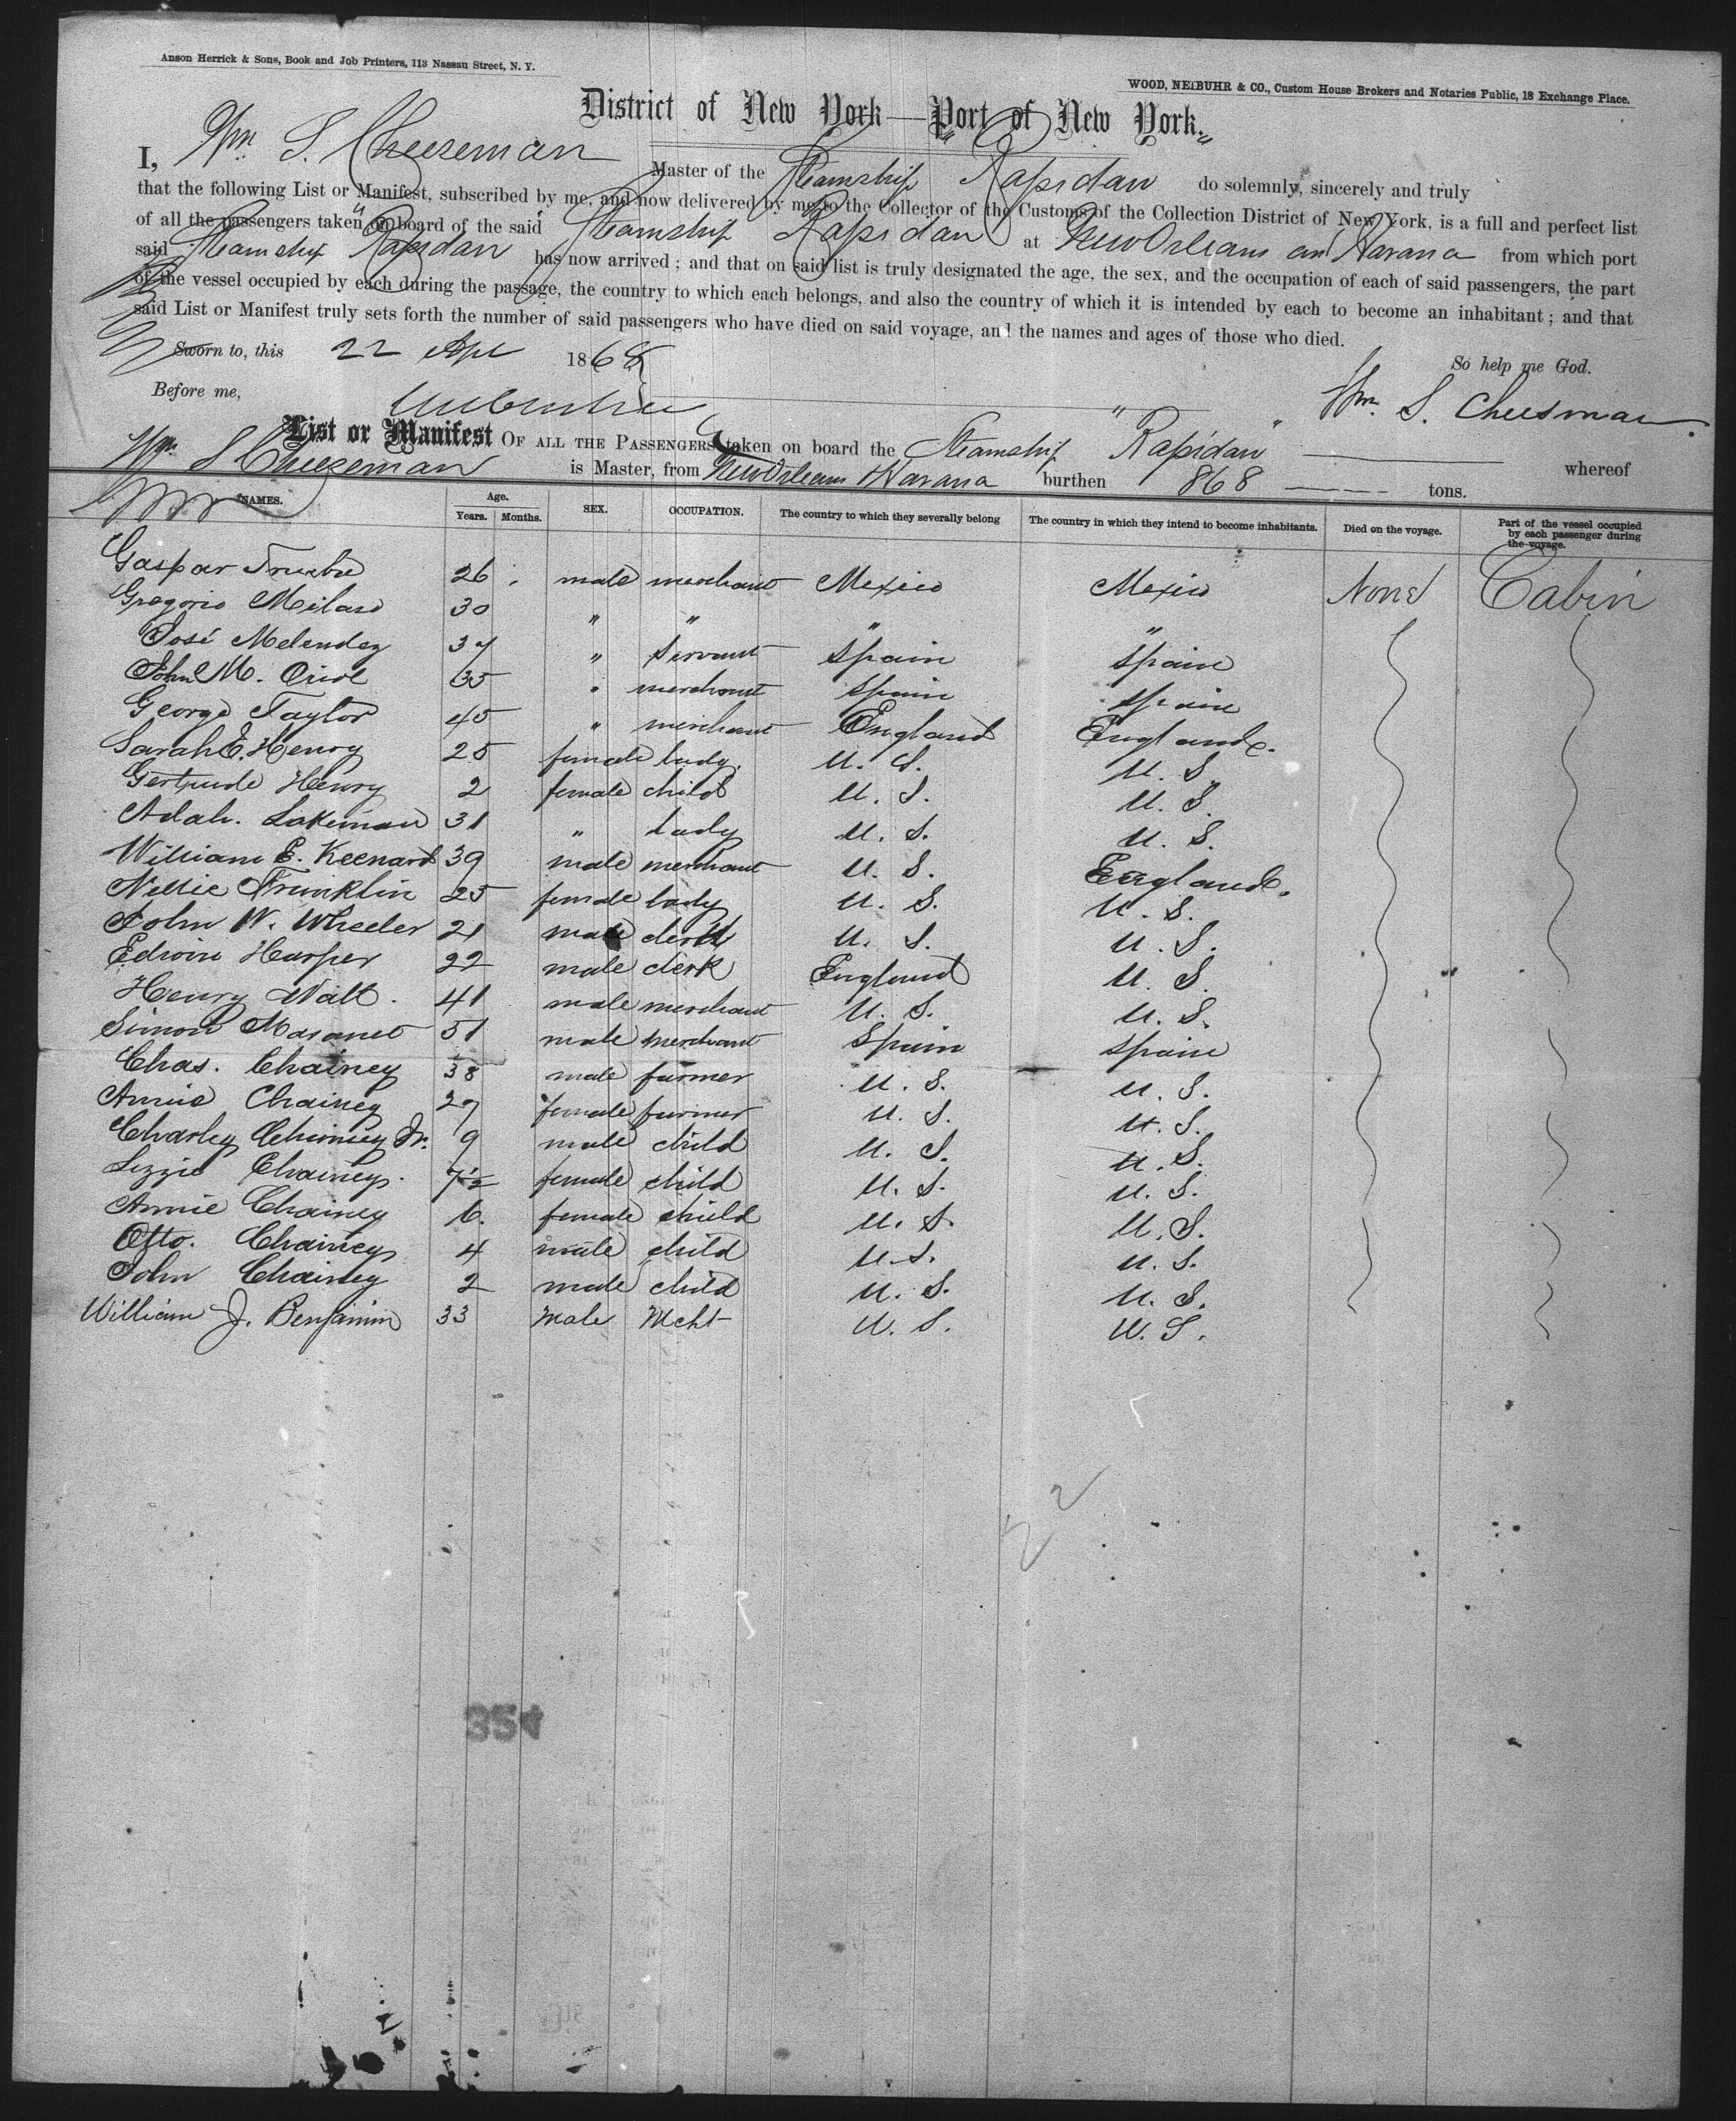 Anson Herrick & Sons, Book and Job Printers, 113 Nassau Street, N. Y.
WOOD, NEIBUHR & CO., Custom House Brokers and Notaries Public, 18 Exchange Place.
District of New York—Port of New York.
I, Wm. S. Cheeseman Master of the Steamship "Rapidan" do solemnly, sincerely and truly
that the following List or Manifest, subscribed by me, and now delivered by me to the Collector of the Customs of the Collection District of New York, is a full and perfect list
of all the passengers taken on board of the said Steamship Rapidan at New Orleans and Havana from which port
said Steamship "Rapidan" has now arrived; and that on said list is truly designated the age, the sex, and the occupation of each of said passengers, the part
of the vessel occupied by each during the passage, the country to which each belongs, and also the country of which it is intended by each to become an inhabitant; and that
said List or Manifest truly sets forth the number of said passengers who have died on said voyage, and the names and ages of those who died.
Sworn to, this 22 Apl 1868 So help me God.
Before me, Wm. S. Cheesman
List or Manifest OF ALL THE PASSENGERS taken on board the Steamship "Rapidan" whereof
Wm. S Cheezeman is Master, from New Orleans & Havana burthen 868 tons.
NAMES. Age. Years. Months. SEX. OCCUPATION. The country to which they severally belong The country in which they intend to become inhabitants. Died on the voyage. Part of the vessel occupied by each passenger during the voyage.
Gaspar 26 male merchant Mexico Mexico None Cabin
Gregorio 30 " " " "
José Melendez 37 " Servant Spain Spain
John M. Oriol 35 " merchant Spain Spain
George Taylor 45 " merchant England England.
Sarah E. Henry 25 female lady. U. S. U. S.
Gertrude Henry 2 female child U. S. U. S.
Adah. Lakeman 31 " Lady U. S. U. S.
William E. Keenard 39 male merchant U. S. England.
Nellie Frinklin 25 female lady U. S. U. S.
John W. Wheeler 21 male clerk U. S. U. S.
Edwin Harper 22 male clerk England U. S.
Henry Walt. 41 male merchant U. S. U. S.
Simon Masanet 51 male merchant Spain Spain
Chas. Chainey 38 male farmer U. S. U. S.
Annie Chainey 27 female farmer U. S. U. S.
Charley Chainey Jr. 9 male child U. S. U. S.
Lizzie Chainey. 7½ female child U. S. U. S.
Annie Chainey 6. female child U. S. U. S.
Otto. Chainey 4 male child U. S. U. S.
John Chainey 2 male child U. S. U. S.
William J. Benjamin 33 Male Mcht U. S. U. S.
22
354